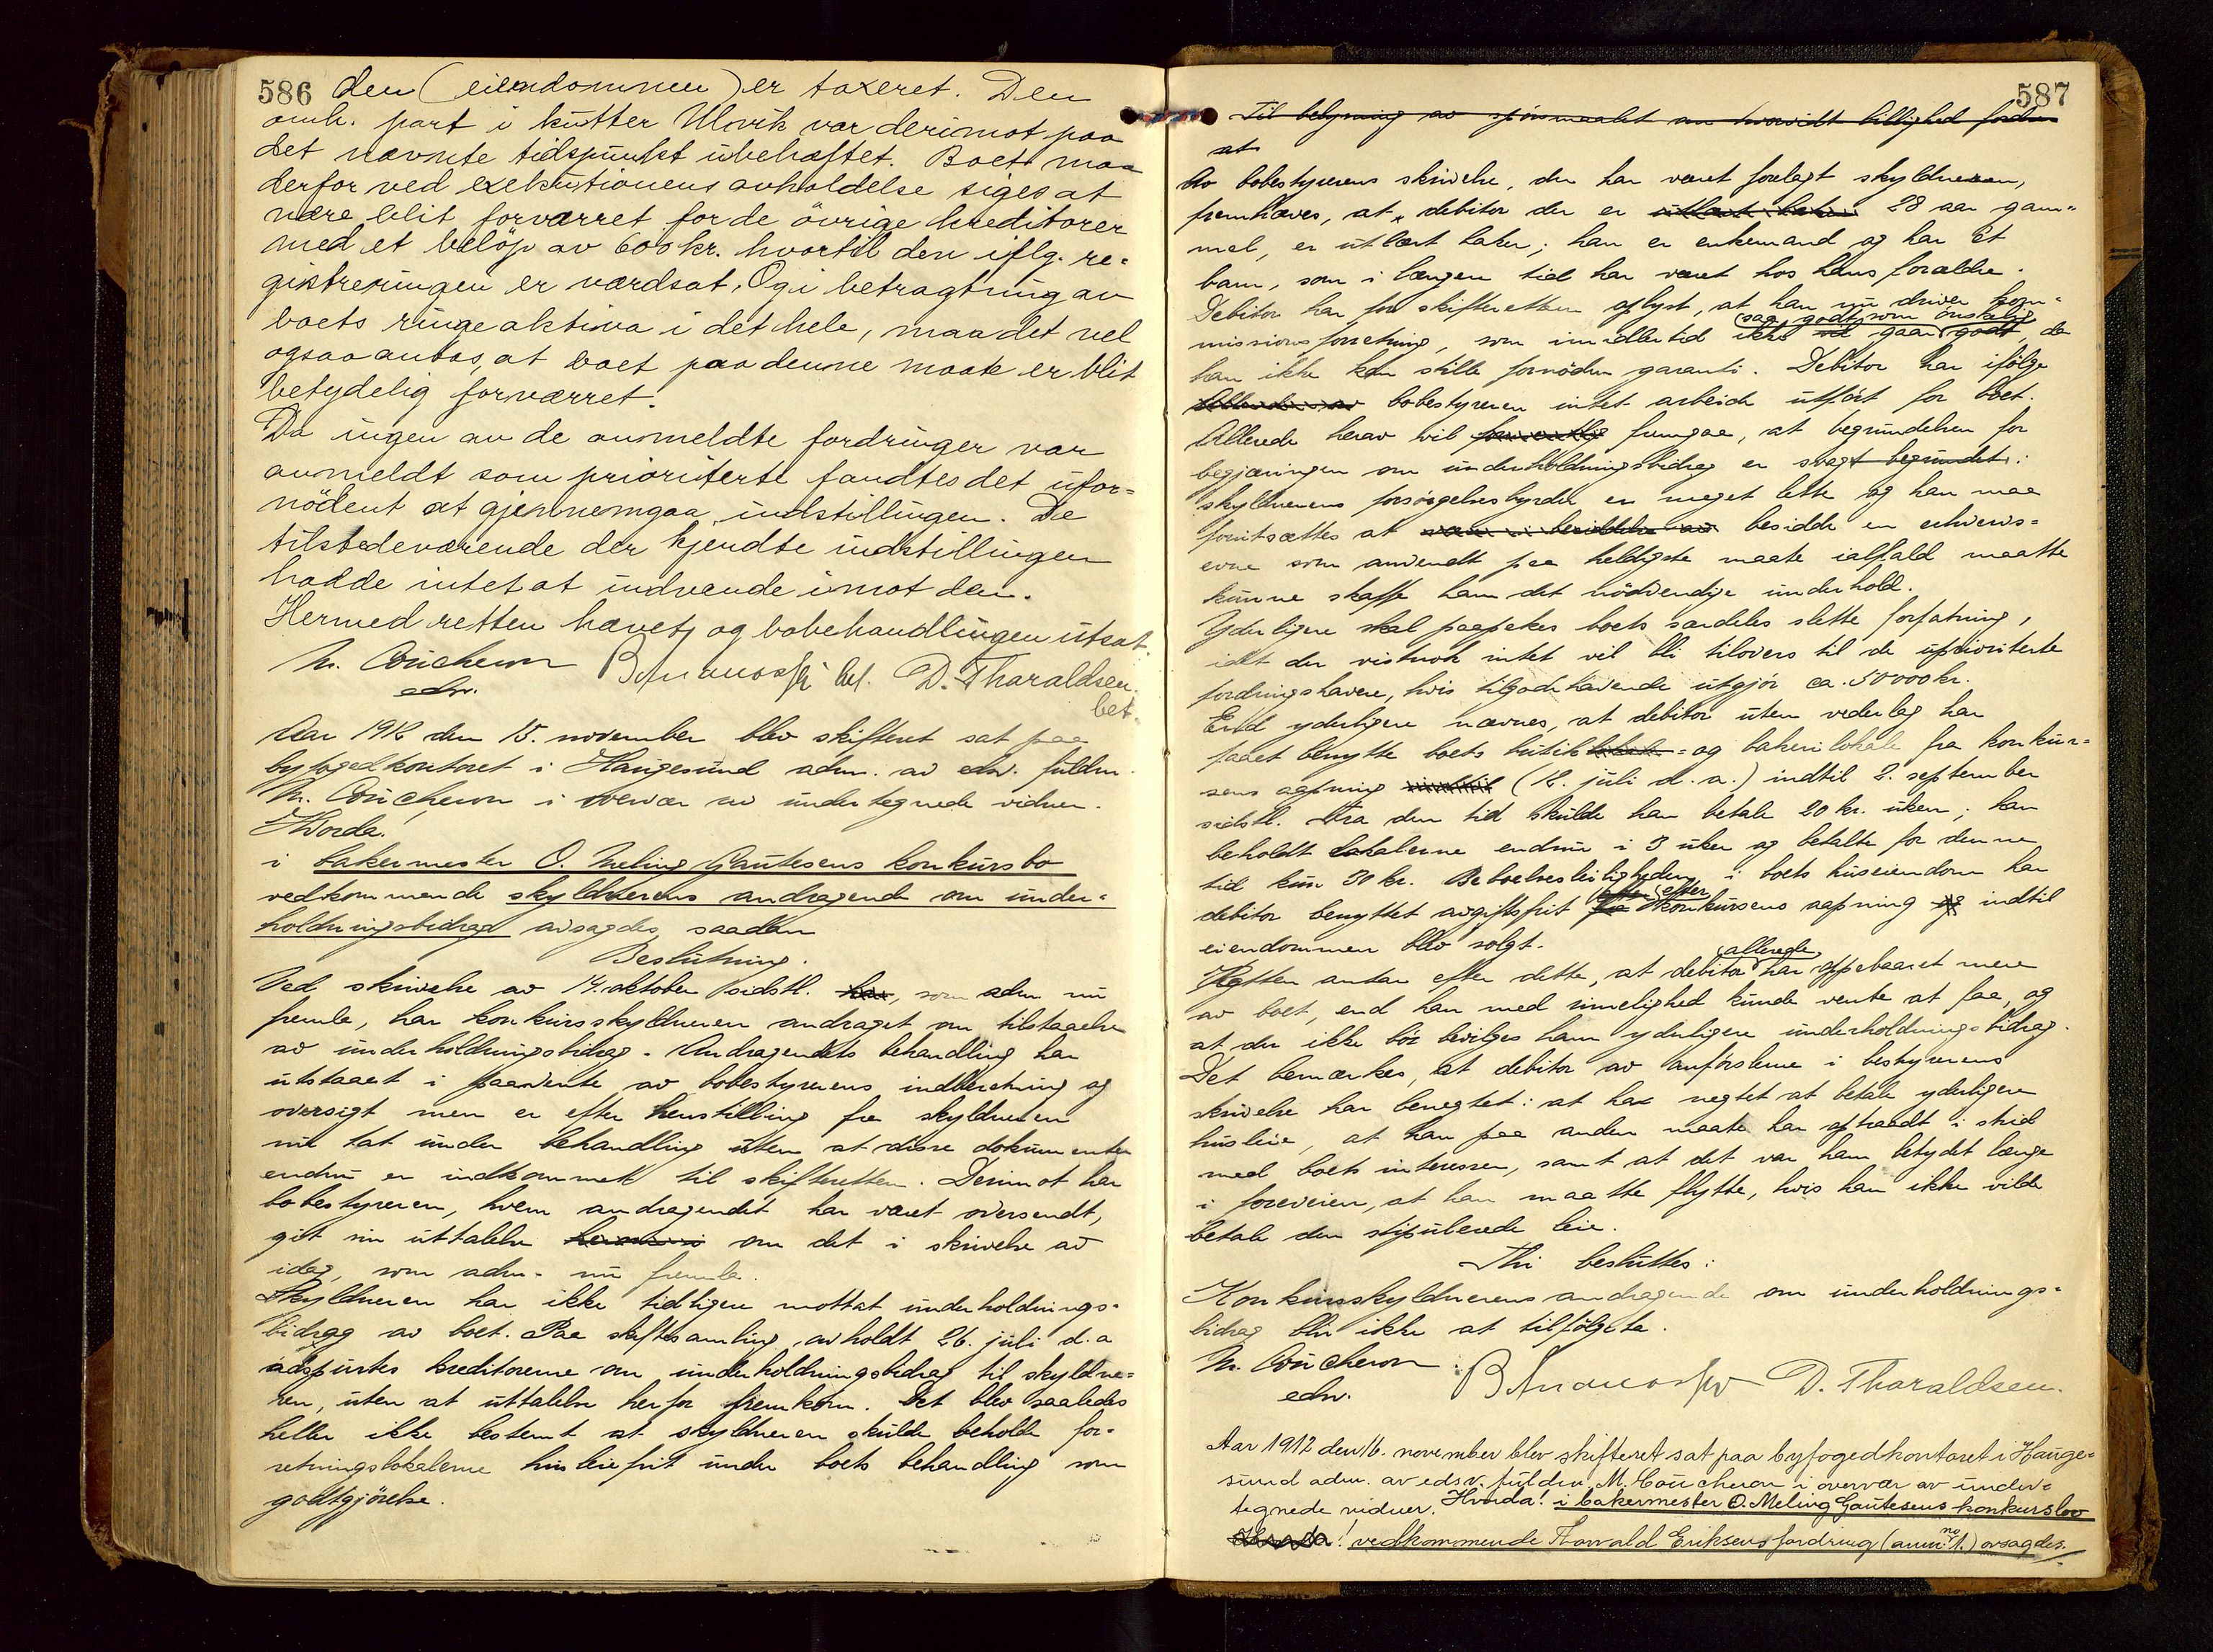 586 den (eiendommen) er taxeret. Den
omh. part i kutter Ulvik var derimot paa
det nævnte tidspunkt ubeheftet. Boet maa
derfor ved exekutionens avholdelse siges at
være blit forværret for de övrige kreditorer
med et belöp av 600 kr. hvortil den iflg. re-
gistreringen er værdsat. Og i betragtning av
boets ringe aktiva i det hele, maa det vel
ogsaa antas, at boet paa denne maate er blit
betydelig forværret.
Da ingen av de anmeldte fordringer var
anmeldt som prioriterte fandtes det ufor-
nödent at gjennemgaa indstillingen. De
tilstedeværende der kjendte indstillingen
hadde intet at indvende imot den.
Hermed retten hævet og bobehandlingen utsat.
M. Coucheron D. Tharaldsen.
edsv. bet.
Aar 1912 den 15. november blev skifteret sat paa
byfogedkontoret i Haugesund adm. av edsv. fuldm.
M. Coucheron i overvær av undertegnede vidner.
Hvorda.
i bakermester O. Meling Gautesens konkursbo
vedkommende skyldnerens andragende om under-
holdningsbidrag avsagdes saadan
Beslutning.
Ved skrivelse av 14. oktober sidstl. har, som adm nu
fremla, har konkursskyldneren andraget om tilstaaelse
av underholdningsbidrag. Andragendets behandling har
utstaaet i paavente av bobestyrerens indberetning og
oversigt men er efter henstilling fra skyldneren
nu tat under behandling uten at disse dokumenter
endnu er indkommet til skifteretten. Derimot har
bobestyreren, hvem andragendet har været oversendt,
git sin uttalelse om det i skrivelse av
idag, som adm. nu fremla.
Skyldneren har ikke tidligere mottat underholdnings-
bidrag av boet. Paa skiftesamling, avholdt 26. juli d.a
adspurtes kreditorerne om underholdningsbidrag til skyldne-
ren, uten at uttalelse herfor fremkom. Det blev saaledes
heller ikke bestemt at skyldneren skulde beholde for-
retningslokalerne husleiefrit under boets behandling som
godtgjörelse.
587
Til belysning av spörsmaalet om hvorvidt billighed fordrer
at
Av bobestyrerens skrivelse, der har været forelagt skyldneren,
fremhæves, at debitor der er utlært baker 28 aar gam-
mel, er utlært baker; han er enkemand og har et
barn, som i længere tid har været hos hans forældre.
Debitor har for skifteretten oplyst, at han nu driver kom-
saa godt som önskelig
missionsforretning, som imidlertid ikke vil gaar godt, da
han ikke kan stille fornöden garanti. Debitor har ifölge
bobestyreren intet arbeide utfört for boet.
Allerede herav vil fremgaa, at begrundelsen for
begjæringen om underholdningsbidrag er svagt begrundet:
skyldnerens forsörgelsesbyrder er meget lette og han maa
forutsættes at være i besiddelse av besidde en erhvervs-
evne som anvendt paa heldigste maate ialfald maatte
kunne skaffe ham det nödvendige underhold.
Yderligere skal paapekes boets særdeles slette forfatning,
idet der vistnok intet vil bli tilovers til de uprioriterte
fordringshavere, hvis tilgodehavende utgjör ca. 50000 kr.
End yderligere nævnes, at debitor uten vederlag har
faaet benytte boets butik- og bakerilokale fra konkur-
sens aapning (12. juli d.a.) indtil 2. september
sidstl. Fra den tid skulde han betale 20 kr. uken; han
beholdt lokalerne endnu i 3 uker og betalte for denne
tid kun 30 kr. Beboelsesleiligheden i boets huseiendom har
efter
debitor benyttet avgiftsfrit fra konkursens aapning og indtil
eiendommen blev solgt.
allerede
Retten antar efter dette, at debitor har oppebaaret mere
av boet, end han med rimelighed kunde vente at faa, og
at der ikke bör bevilges ham yderligere underholdningsbidrag.
Det bemærkes, at debitor av anförslerne i bestyrerens
skrivelse har benegtet: at han negtet at betale yderligere
husleie, at han paa anden maate har optraadt i strid
med boets interesser, samt at det var ham betydet længe
i foreveien, at han maatte flytte, hvis han ikke vilde
betale den stipulerede leie.
Thi besluttes:
Konkursskyldnerens andragende om underholdnings-
bidrag blir ikke at tilfölgeta.
M. Coucheron D. Tharaldsen.
edsv.
Aar 1912 den 16. november blev skifteret sat paa byfogedkontoret i Hauge-
sund adm. av edsv. fuldm. M. Coucheron i overvær av under-
tegnede vidner. Hvorda! i bakermester O. Meling Gautesens konkursbo
Hvorda! vedkommende Thorvald Eriksens fordring (anm. no 1.) avsagdes.